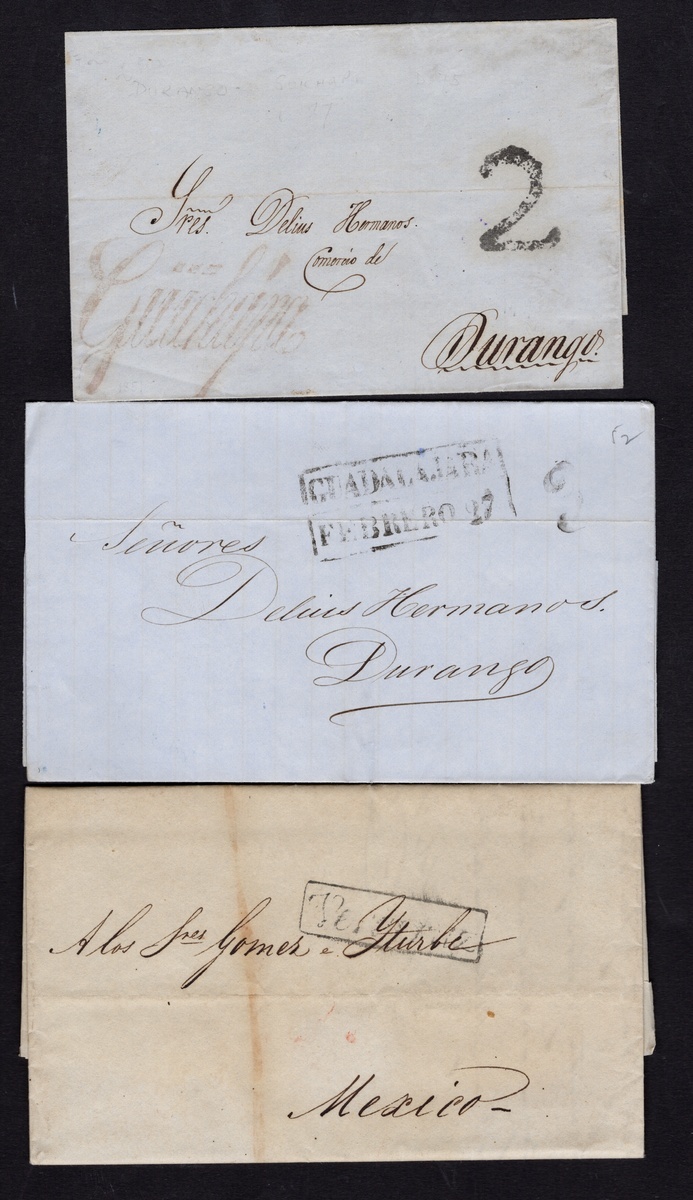 DURANGO
2
Sres. Delius Hermanos.
Comercio de
Durango.
F2
GUADALAJARA
FEBRERO 27
Señores
Delius Hermanos.
Durango
A los Sres Gomez e Yturbe
Mexico